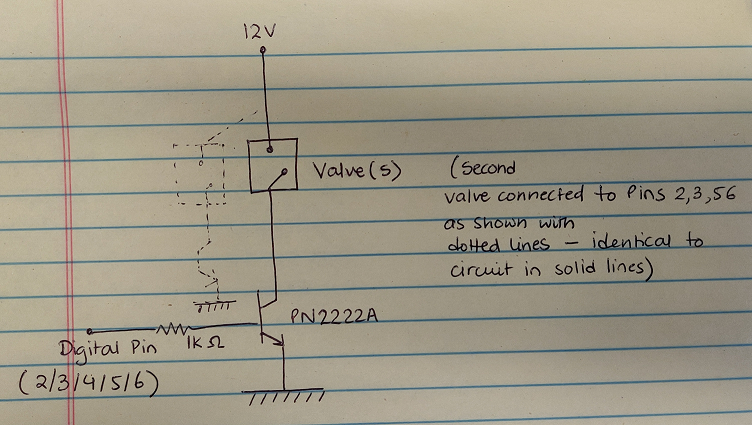 12V
Valve(s)
(Second
valve connected to Pins 2,3,56
as shown with
dotted lines – identical to
circuit in solid lines)
PN2222A
1K Ω
Digital Pin
(2/3/4/5/6)